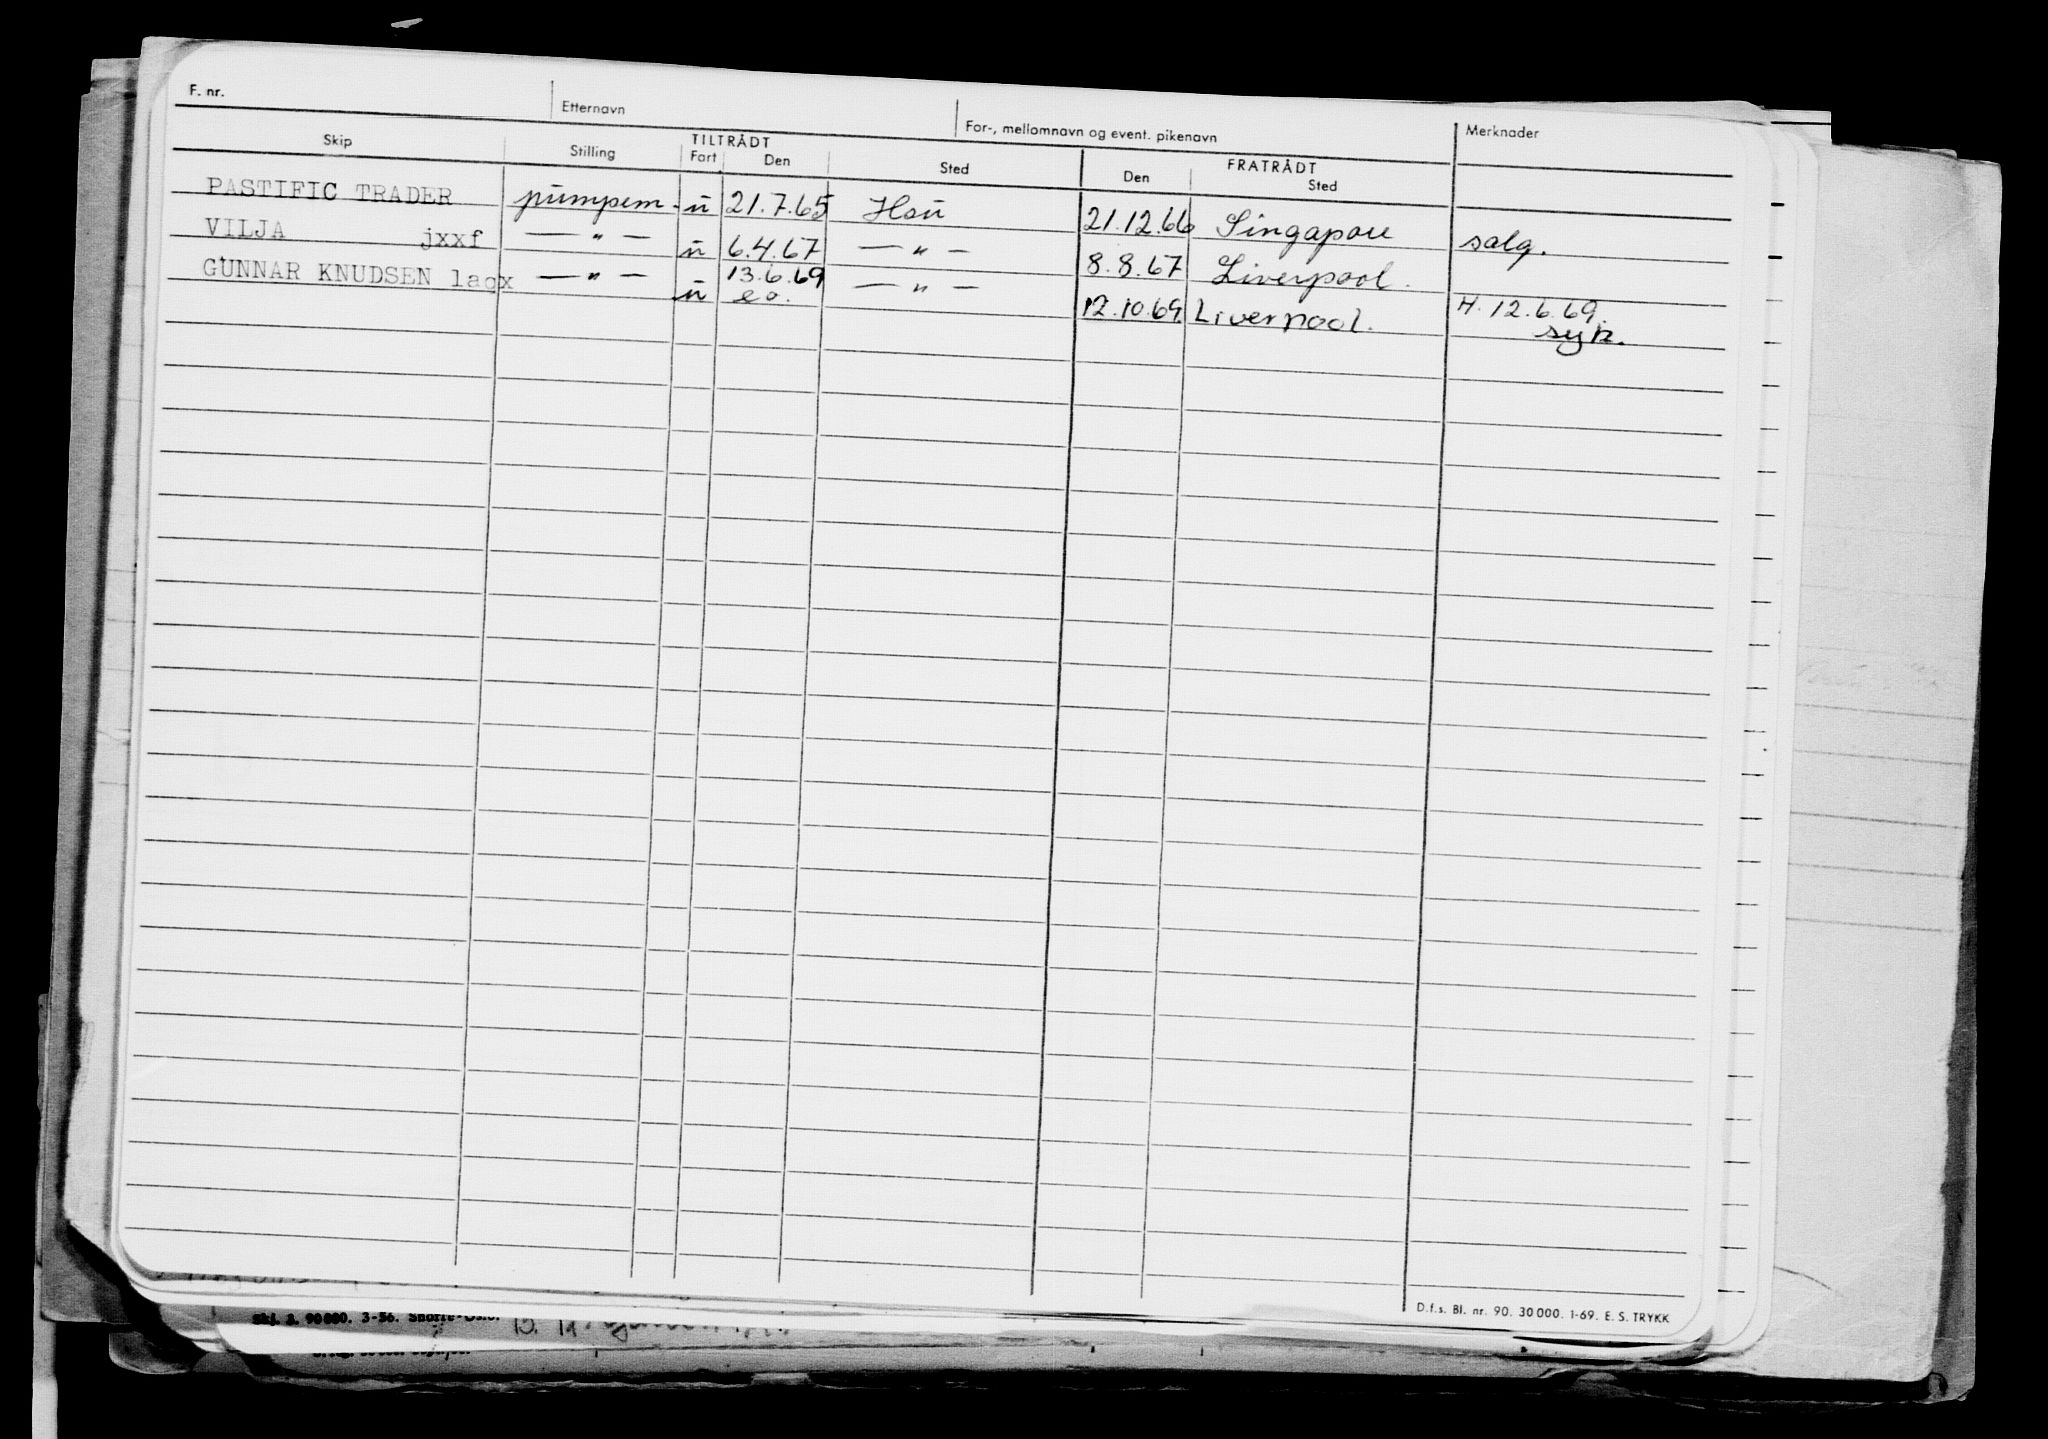 F. nr. Etternavn For-, mellomnavn og event. pikenavn Merknader
TILTRÅDT FRATRÅDT
Skip Stilling Fart Den Sted Den Sted
PASTIFIC TRADER pumpem. u 21.7.65 Hsu 21.12.66 Singapore salg.
VILJA jxxf — " — u 6.4.67 — " — 8.8.67 Liverpool.
GUNNAR KNUDSEN laqx — " — u 13.6.69 — " — 12.10.69 Liverpool. H. 12.6.69.
eo. syk.
D.f.s. Bl. nr. 90. 30 000. 1-69. E. S. TRYKK
Skj. 2. 90 000. 3-56. Snorre-Oslo.